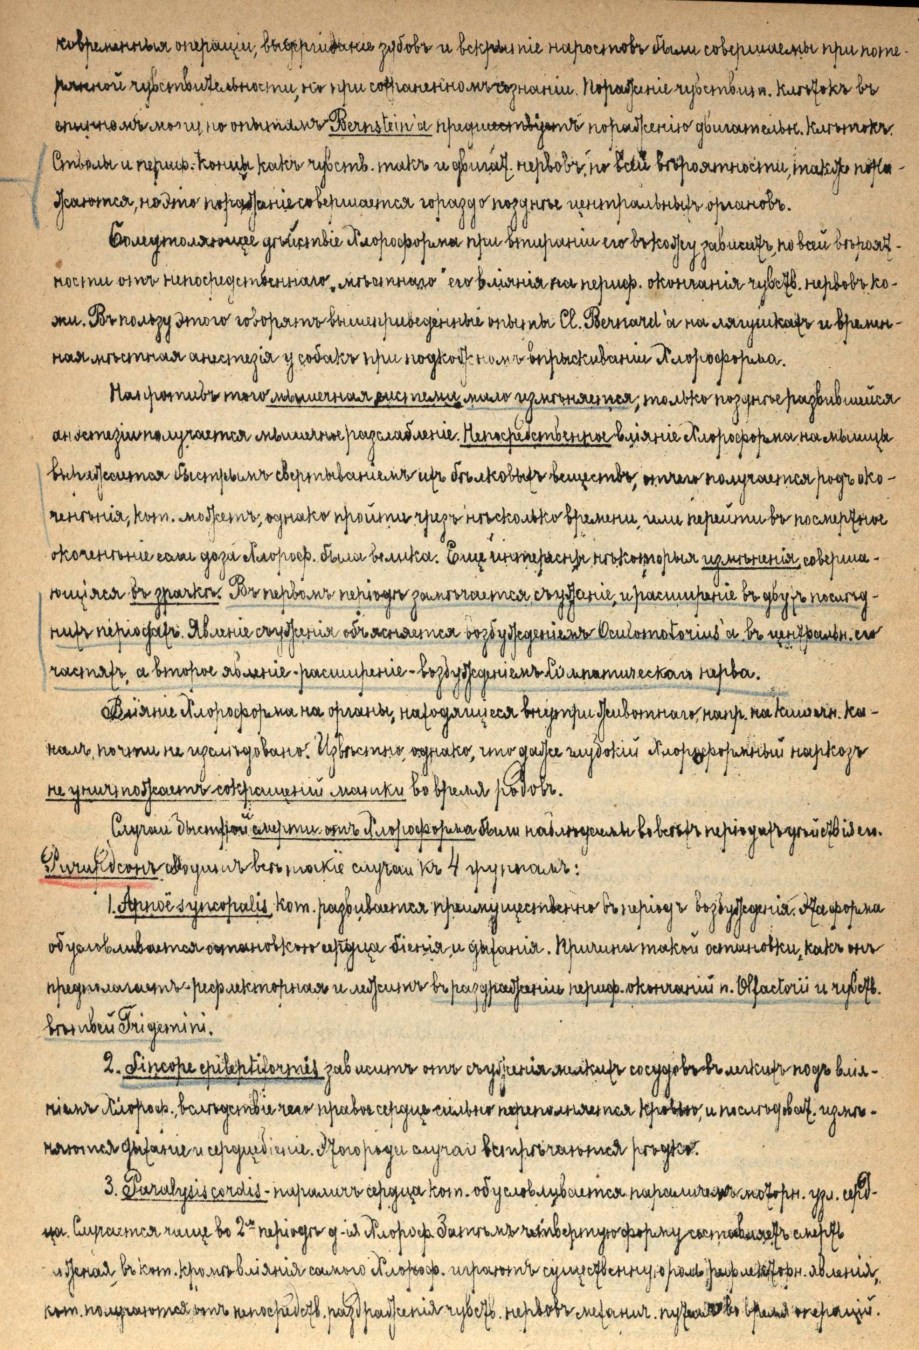 ковременныя операціи, выдергіваніе зубовъ и вскрытіе наростовъ были совершаемы при поте-
рянной чувствительности, но при сохраненномъ сознаніи. Пораженіе чувствит. клѣтокъ въ
спинномъ мозгу, по опытамъ Bernstein'a предшествуетъ пораженію двигательн. клѣтокъ.
Стволы и периф. концы какъ чувств. такъ и двигат. нервовъ, по всей вѣроятности, также пора-
жаются, но это пораженіе совершается гораздо позднѣе центральныхъ органовъ.
Болеутоляющее дѣйствіе Хлороформа при втираніи его въ кожу зависитъ, по всей вѣроят-
ности отъ непосредственнаго, „мѣстнаго" его вліянія на периф. окончанія чувств. нервовъ ко-
жи. Въ пользу этого говорятъ вышеприведенные опыты Cl. Bernard'a на лягушкахъ и времен-
ная мѣстная анестезія у собакъ при подкожномъ впрыскиваніи Хлороформа.
Напротивъ того мышечная система мало измѣняется; только позднѣе развившейся
анестезіи получается мышечное разслабленіе. Непосредственное вліяніе Хлороформа на мышцы
выражается быстрымъ свертываніемъ ихъ бѣлковыхъ веществъ, отчего получается родъ око-
ченѣнія, кот. можетъ, однако пройти чрезъ нѣсколько времени, или перейти въ посмертное
окоченѣніе если доза Хлороф. была велика. Еще интересны нѣкоторыя измѣненія, соверша-
ющіяся въ зрачкѣ. Въ первомъ періодѣ замѣчается съуженіе, и расширеніе въ двухъ послѣд-
нихъ періодахъ. Явленіе съуженія объясняется возбужденіемъ Oculomotorius'a въ центральн. его
частяхъ, а второе явленіе - расширеніе - возбужденіемъ Симпатическаго нерва.
Вліяніе Хлороформа на органы, находящіеся внутри животнаго, напр. на кишечн. ка-
налъ, почти не изслѣдовано. Извѣстно, однако, что даже глубокій Хлороформный наркозъ
не уничтожаетъ сокращеній матки во время родовъ.
Случаи быстрой смерти отъ Хлороформа были наблюдаемы во всѣхъ періодахъ дѣйствія его.
Ричардсонъ сводитъ всѣ такіе случаи къ 4 группамъ:
1. Apnoë syncopalis, кот. развивается преимущественно въ періодъ возбужденія. Эта форма
обусловливается остановкою сердца біенія и дыханія. Причина такой остановки, какъ онъ
предполагаетъ - рефлекторная и лежитъ въ раздраженіи периф. окончаній n. Olfactorii и чувств.
вѣтвей Trigemini.
2. Sincope epileptiformis зависитъ отъ съуженія мелкихъ сосудовъ въ легкихъ подъ влія-
ніемъ Хлороф., вслѣдствіе чего правое сердце сильно переполняется кровью, и послѣдоват. измѣ-
няются дыханіе и сердцебіеніе. Этого рода случаи встрѣчаются рѣдко.
3. Paralysis cordis - параличъ сердца кот. обусловливается параличемъ моторн. узл. серд-
ца. Случается чаще во 2м періодѣ д-ія Хлороф. Затѣмъ четвертую форму составляетъ смерть
въ кот. кромѣ вліянія самого Хлороф. играютъ существенную роль рефлекторн. явленія,
кот. получаются отъ непосредств. раздраженія чувств. нервовъ механич. путемъ во время операцій.